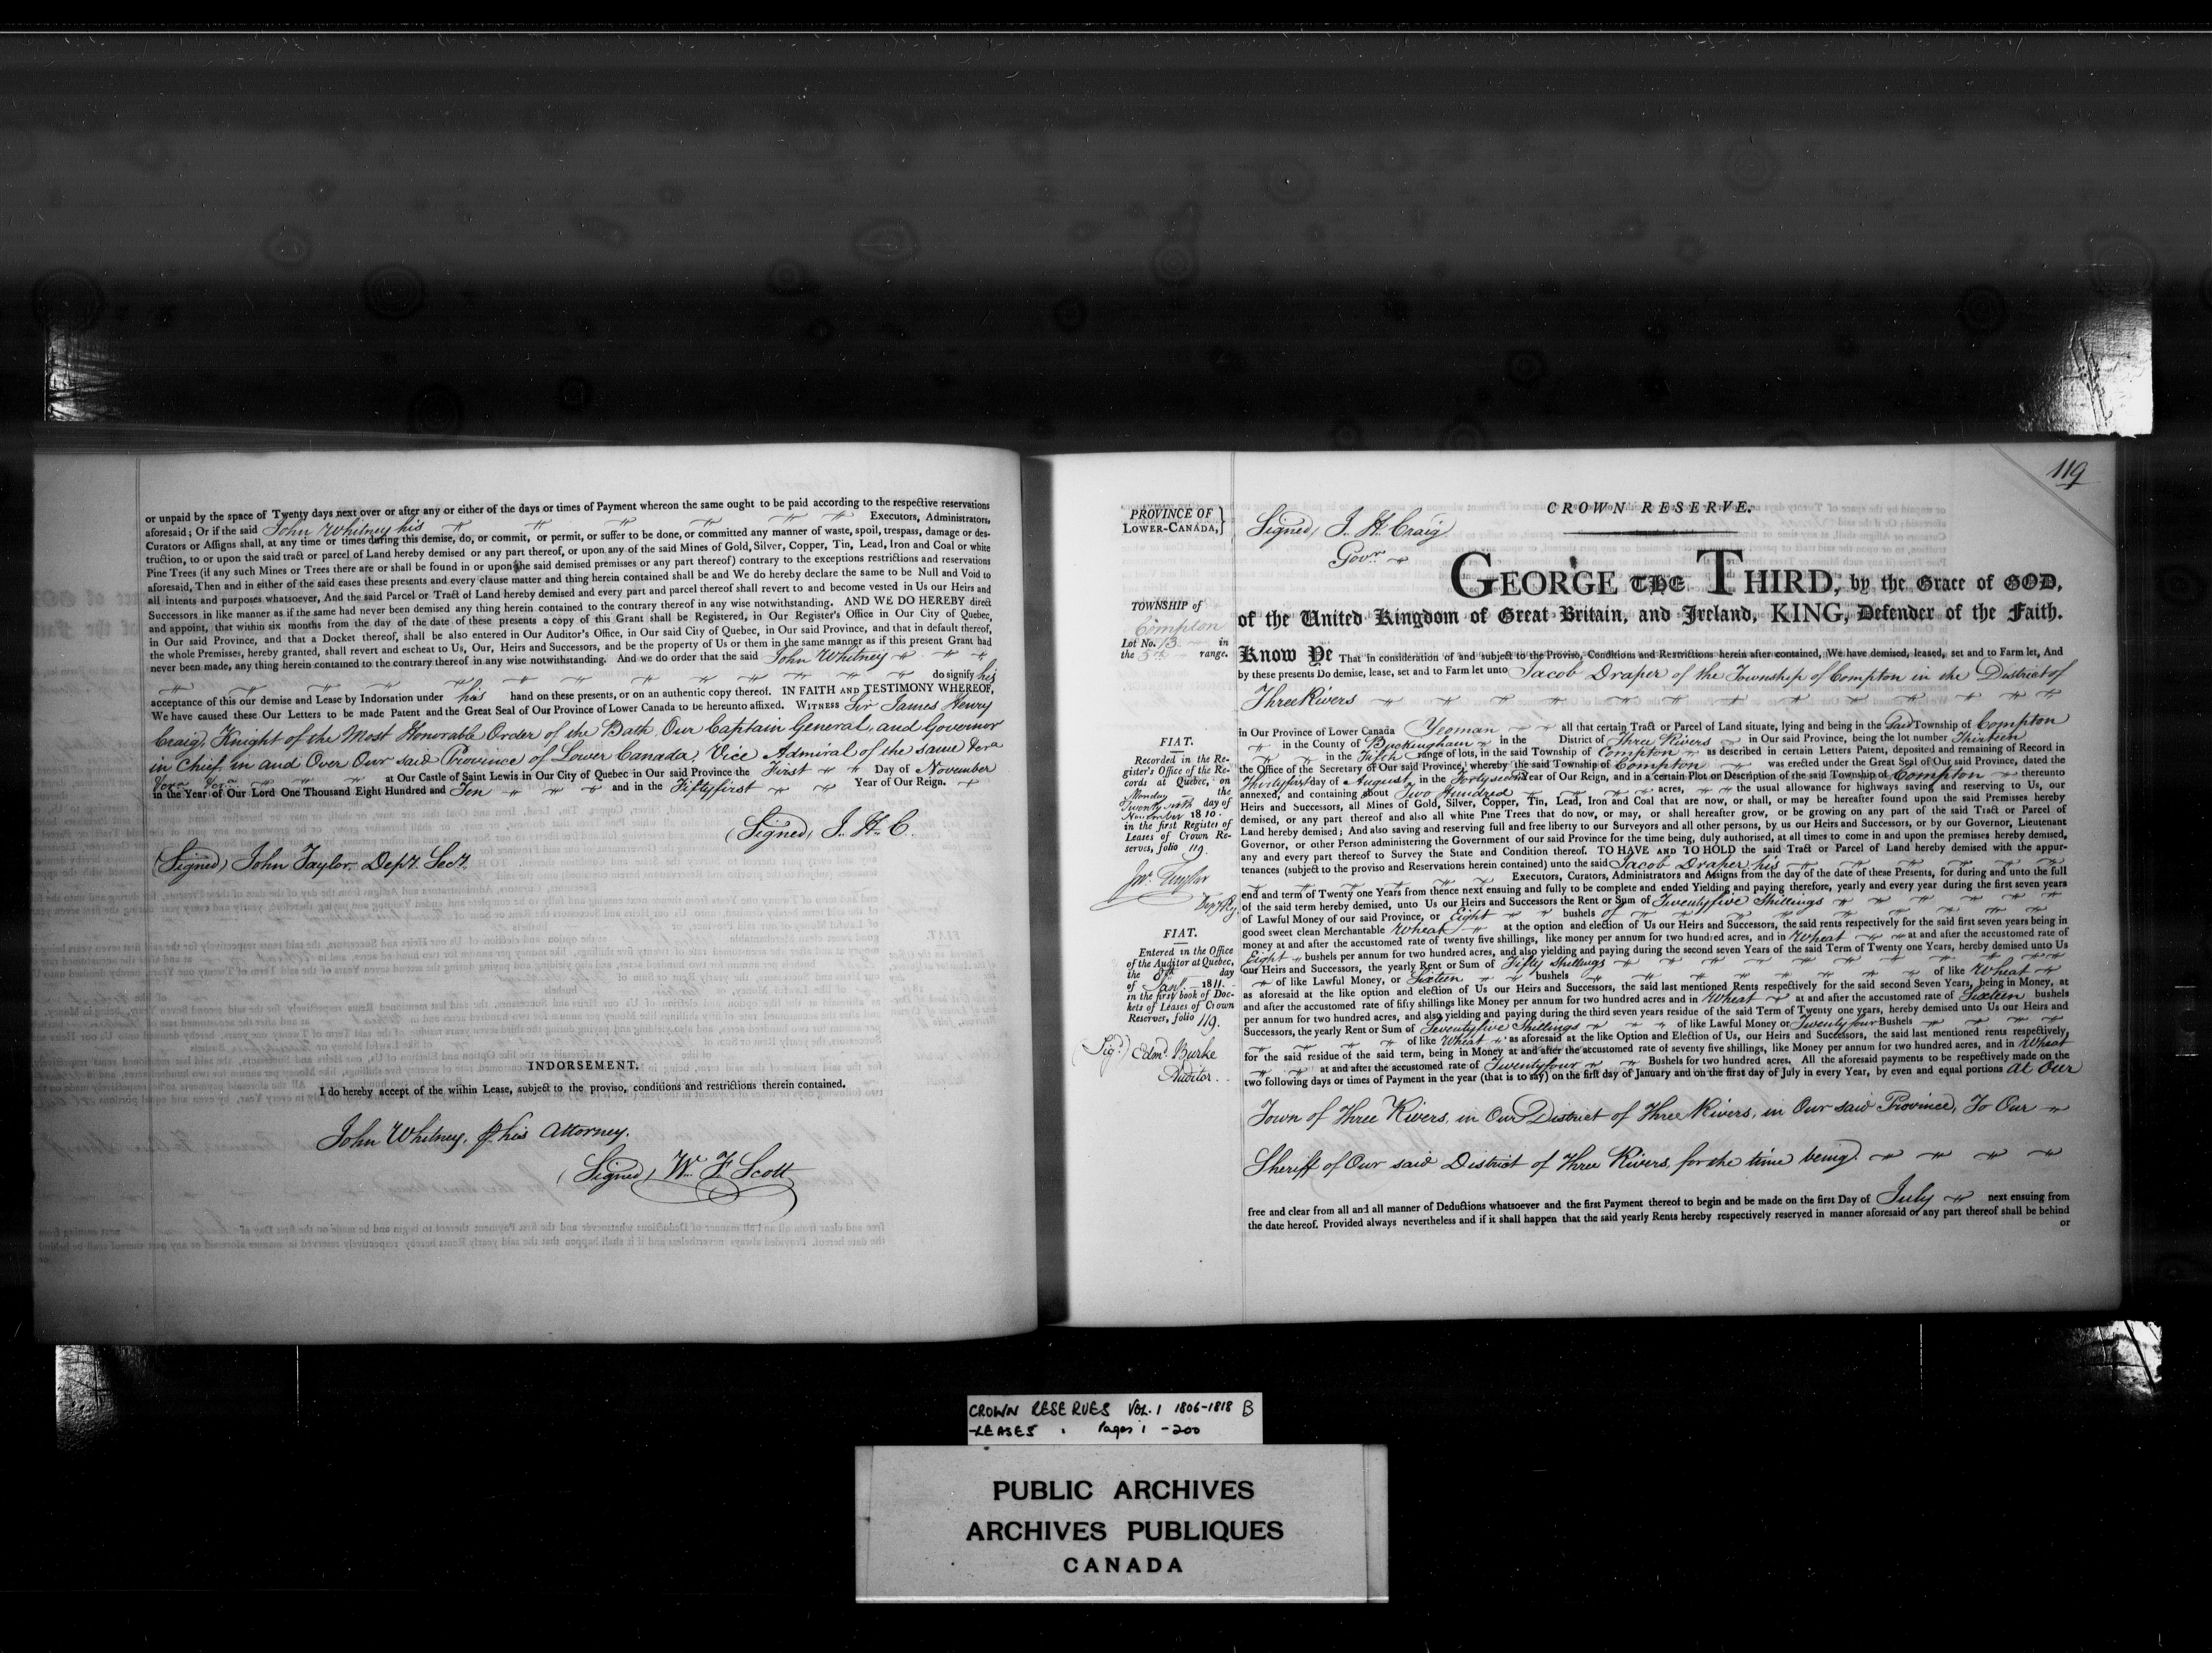 or unpaid by the space of Twenty days next over or after any or either of the days or times of Payment whereon the same ought to be paid according to the respective reservations
aforesaid; Or if the said John Whitney his Executors, Administrators,
Curators or Assigns shall, at any time or times during this demise, do, or commit, or permit, or suffer to be done, or committed any manner of waste, spoil, trespass, damage or des-
truction, to or upon the said tract or parcel of Land hereby demised or any part thereof, or upon any of the said Mines of Gold, Silver, Copper, Tin, Lead, Iron and Coal or white
Pine Trees (if any such Mines or Trees there are or shall be found in or upon the said demised premises or any part thereof) contrary to the exceptions restrictions and reservations
aforesaid, Then and in either of the said cases these presents and every clause matter and thing herein contained shall be and We do hereby declare the same to be Null and Void to
all intents and purposes whatsoever, And the said Parcel or Tract of Land hereby demised and every part and parcel thereof shall revert to and become vested in Us our Heirs and
Successors in like manner as if the same had never been demised any thing herein contained to the contrary thereof in any wise notwithstanding. AND WE DO HEREBY direct
and appoint, that within six months from the day of the date of these presents a copy of this Grant shall be Registered, in Our Register's Office in Our City of Quebec,
in Our said Province, and that a Docket thereof, shall be also entered in Our Auditor's Office, in Our said City of Quebec, in Our said Province, and that in default thereof,
the whole Premises, hereby granted, shall revert and escheat to Us, Our, Heirs and Successors, and be the property of Us or them in the same manner as if this present Grant had
never been made, any thing herein contained to the contrary thereof in any wise notwithstanding. And we do order that the said John Whitney
do signify his
acceptance of this our demise and Lease by Indorsation under his hand on these presents, or on an authentic copy thereof. IN FAITH AND TESTIMONY WHEREOF,
We have caused these Our Letters to be made Patent and the Great Seal of Our Province of Lower Canada to be hereunto affixed. WITNESS Sir James Henry
Craig, Knight of the Most Honorable Order of the Bath, Our Captain General, and Governor
in Chief, in and Over Our said Province of Lower Canada, Vice Admiral of the same &ca
&ca &ca at Our Castle of Saint Lewis in Our City of Quebec in Our said Province the First Day of November
in the Year of Our Lord One Thousand Eight Hundred and Ten and in the Fiftyfirst Year of Our Reign.
(Signed) J. H. C.
(Signed) John Taylor Depy. Secy.
INDORSEMENT.
I do hereby accept of the within Lease, subject to the proviso, conditions and restrictions therein contained.
John Whitney, his Attorney.
(Signed) W. F. Scott
119
CROWN RESERVE.
PROVINCE OF
LOWER-CANADA,}
Signed) J. H. Craig
Govr.
GEORGE THE THIRD, by the Grace of GOD,
of the United Kingdom of Great Britain, and Ireland, KING, Defender of the Faith.
TOWNSHIP of
Compton
Lot No. 13 in
the 5th range.
Know Ye That in consideration of and subject to the Proviso, Conditions and Restrictions herein after contained, We have demised, leased, set and to Farm let, And
by these presents Do demise, lease, set and to Farm let unto Jacob Draper of the Township of Compton in the District of
Three Rivers
in Our Province of Lower Canada Yeoman all that certain Tract or Parcel of Land situate, lying and being in the said Township of Compton
in the County of Buckingham in the District of Three Rivers in Our said Province, being the lot number Thirteen
in the Fifth range of lots, in the said Township of Compton as described in certain Letters Patent, deposited and remaining of Record in
the Office of the Secretary of Our said Province, whereby the said Township of Compton was erected under the Great Seal of Our said Province, dated the
Thirtyfirst day of August in the Fortysecond Year of Our Reign, and in a certain Plot or Description of the said Township of Compton thereunto
annexed, and containing about Two Hundred acres, the usual allowance for highways saving and reserving to Us, our
Heirs and Successors, all Mines of Gold, Silver, Copper, Tin, Lead, Iron and Coal that are now, or shall, or may be hereafter found upon the said Premises hereby
demised, or any part thereof and also all white Pine Trees that do now, or may, or shall hereafter grow, or be growing on any part of the said Tract or Parcel of
Land hereby demised; And also saving and reserving full and free liberty to our Surveyors and all other persons, by us our Heirs and Successors, or by our Governor, Lieutenant
Governor, or other Person administering the Government of our said Province for the time being, duly authorised, at all times to come in and upon the premises hereby demised,
any and every part thereof to Survey the State and Condition thereof. TO HAVE AND TO HOLD the said Tract or Parcel of Land hereby demised with the appur-
tenances (subject to the proviso and Reservations herein contained) unto the said Jacob Draper his
Executors, Curators, Administrators and Assigns from the day of the date of these Presents, for during and unto the full
end and term of Twenty one Years from thence next ensuing and fully to be complete and ended Yielding and paying therefore, yearly and every year during the first seven years
of the said term hereby demised, unto Us our Heirs and Successors the Rent or Sum of Twentyfive Shillings
of Lawful Money of our said Province, or Eight bushels of
good sweet clean Merchantable Wheat at the option and election of Us our Heirs and Successors, the said rents respectively for the said first seven years being in
money at and after the accustomed rate of twenty five shillings, like money per annum for two hundred acres, and in Wheat at and after the accustomed rate of
Eight bushels per annum for two hundred acres, and also yielding and paying during the second seven Years of the said Term of Twenty one Years, hereby demised unto Us
our Heirs and Successors, the yearly Rent or Sum of Fifty Shillings
of like Lawful Money, or Sixteen bushels of like Wheat
as aforesaid at the like option and election of Us our Heirs and Successors, the said last mentioned Rents respectively for the said second Seven Years, being in Money, at
and after the accustomed rate of fifty shillings like Money per annum for two hundred acres and in Wheat at and after the accustomed rate of Sixteen bushels
per annum for two hundred acres, and also yielding and paying during the third seven years residue of the said Term of Twenty one years, hereby demised unto Us our Heirs and
Successors, the yearly Rent or Sum of Seventyfive Shillings of like Lawful Money or Twentyfour Bushels
of like Wheat as aforesaid at the like Option and Election of Us, our Heirs and Successors, the said last mentioned rents respectively,
for the said residue of the said term, being in Money at and after the accustomed rate of seventy five shillings, like Money per annum for two hundred acres, and in Wheat
at and after the accustomed rate of Twentyfour Bushels for two hundred acres. All the aforesaid payments to be respectively made on the
two following days or times of Payment in the year (that is to say) on the first day of January and on the first day of July in every Year, by even and equal portions at Our
Town of Three Rivers, in Our District of Three Rivers, in Our said Province, To Our
Sheriff of Our said District of Three Rivers, for the time being.
free and clear from all and all manner of Deductions whatsoever and the first Payment thereof to begin and be made on the first Day of July next ensuing from
the date hereof. Provided always nevertheless and if it shall happen that the said yearly Rents hereby respectively reserved in manner aforesaid or any part thereof shall be behind
or
FIAT.
Recorded in the Re-
gister's Office of the Re-
cords at Quebec, on
Monday the
Twenty sixth day of
November 1810.
in the first Register of
Leases of Crown Re-
serves, folio 119.
Jno. Taylor
Depy Rr.
FIAT.
Entered in the Office
of the Auditor at Quebec,
the 8th day
of Jany. 1811.
in the first book of Doc-
kets of Leases of Crown
Reserves, folio 119.
(Sigd.) Edmd. Burke
Auditor.
CROWN RESERVES VOL. 1 1806-1818 B
-LEASES Pages 1 -200
PUBLIC ARCHIVES
ARCHIVES PUBLIQUES
CANADA